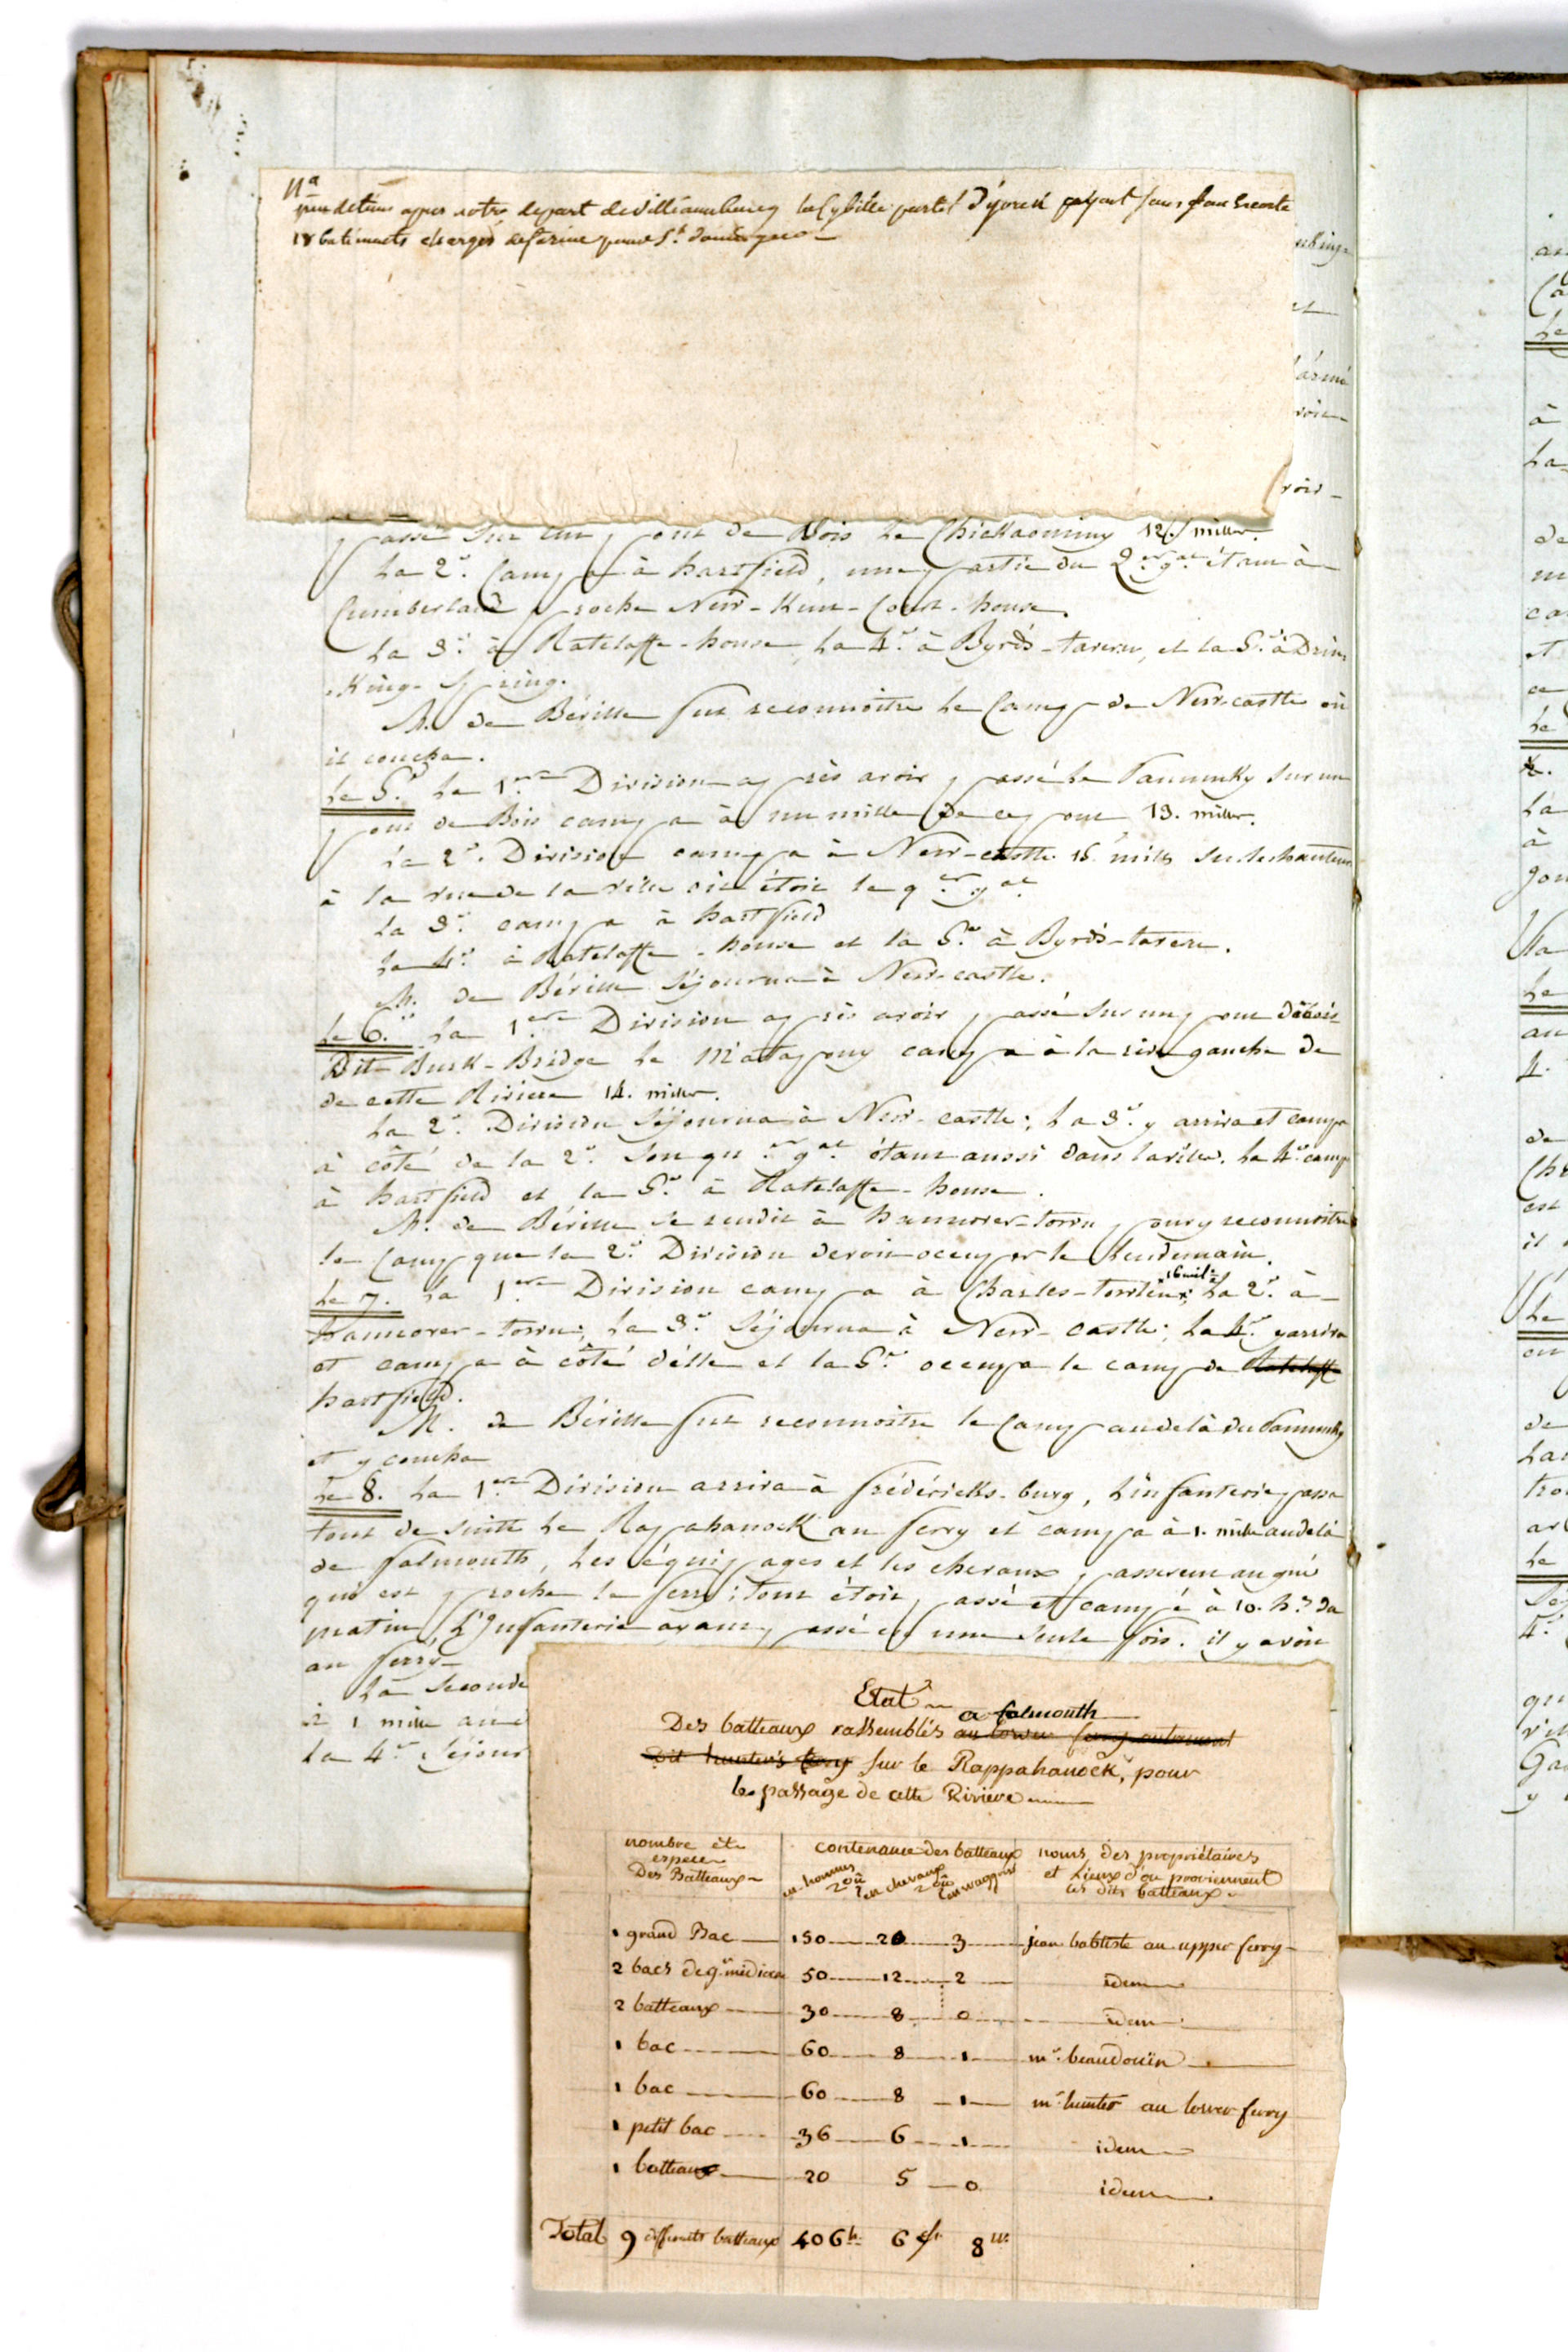 Na
peu de tems apres notre depart de Williamsburg la Cybèle partit d'yorck sous son Escorte
18 batiments chargés de farine pour St. domingue
passé sur un pont de Bois le Chickaominy 12. milles.
La 2e. Campa à hartfield, une partie du Qer. gal. étant à
Cumberland proche New-Kent-Court-house.
La 3e. à Ratelaffe-house, la 4e. à Byrd's-tavern, et la 5e. à Drin
King-Spring.
M. de Béville fut reconnoitre le Camp de New-castle où
il coucha.
le 5. la 1ere Division après avoir passé le Pamunky sur un
pont de Bois campa à un mille de ce pont 13. milles.
La 2e. Division campa à New-castle 15 milles sur les hauteurs
à la vue de la ville où étoit le qer. gal.
La 3e. campa à hartfield
La 4e. à Ratelaffe-house et la 5e. à Byrd's-tavern.
M. de Béville séjourna à New-castle.
le 6. La 1ere Division après avoir passé sur un pont de bois
Dit Burk-Bridge le Matapony campa à la rive gauche de
de cette Riviere 14. milles.
La 2e. Division séjourna à New-castle; La 3e. y arriva et campa
à côté de la 2e. Son quer. gal. étant aussi dans la ville. La 4e. camp
à hartfield et la 5e. à Ratelaffe-house.
M. de Béville se rendit à hannover-town pour y reconnoitre
le Camp que la 2e. Division devoit occuper le lendemain.
le 7. La 1ere Division campa à Charles-
16 mil.
La 2e. à
hannover-town; La 3e. séjourna à New-castle; La 4e. y arriva
et campa à côté d'elle et la 5e. occupa le camp de Ratelaffe
hartfield.
M. de Béville fut reconnoitre le Camp au delà du Pamunky
et y coucha
le 8. La 1ere Division arriva à frédéricks-burg, L'infanterie passa
tout de suite le Rapahanock au ferry et campa à 1. mille au delà
de falmouth, Les équipages et les chevaux passerent au gué
qui est proche le ferry; tout étoit passé et campé à 10. h. du
matin, L'Infanterie ayant passé en une seule fois. il y avoit
au ferry
La Seconde
à 1 mille au d
La 4e. séjour
Etat
Des batteaux rassemblés au lower ferry autrement
a falmouth
Dit hunter's ferry sur le Rappahanock, pour
le passage de cette Riviere
nombre et espece Des Batteaux
contenance des batteaux
en hommes ou en chevaux ou en waggons
noms des propriétaires et Lieux d'ou proviennent les dits batteaux
1 grand Bac 150 20 3 jean babtiste au upper ferry
2 bacs de gr. mediocre 50 12 2 idem
2 batteaux 30 8 0 idem
1 bac 60 8 1 mr. beaudouin
1 bac 60 8 1 mr. hunter au lower ferry
1 petit bac 36 6 1 idem
1 batteaux 20 5 0 idem
Total 9 differents batteaux 406 h. 6 ch. 8 w.